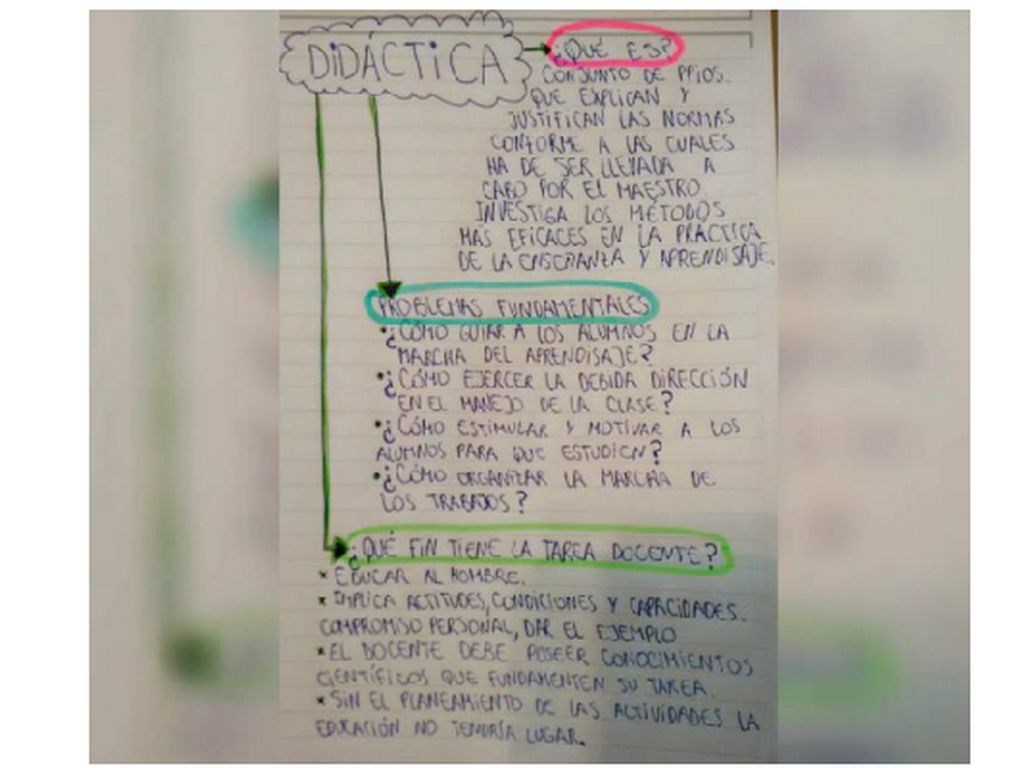 DIDÁCTICA
¿QUÉ ES?
CONJUNTO DE PPIOS.
QUE EXPLICAN Y
JUSTIFICAN LAS NORMAS
CONFORME A LAS CUALES
HA DE SER LLEVADA A
CABO POR EL MAESTRO.
INVESTIGA LOS MÉTODOS
MAS EFICACES EN LA PRÁCTICA
DE LA ENSEÑANZA Y APRENDISAJE.
PROBLEMAS FUNDAMENTALES
•¿CÓMO GUIAR A LOS ALUMNOS EN LA
MARCHA DEL APRENDISAJE?
•¿CÓMO EJERCER LA DEBIDA DIRECCIÓN
EN EL MANEJO DE LA CLASE?
•¿CÓMO ESTIMULAR Y MOTIVAR A LOS
ALUMNOS PARA QUE ESTUDIEN?
•¿CÓMO ORGANIZAR LA MARCHA DE
LOS TRABAJOS?
¿QUÉ FIN TIENE LA TAREA DOCENTE?
* EDUCAR AL HOMBRE.
* IMPLICA ACTITUDES, CONDICIONES Y CAPACIDADES.
COMPROMISO PERSONAL, DAR EL EJEMPLO
* EL DOCENTE DEBE POSEER CONOCIMIENTOS
CIENTÍFICOS QUE FUNDAMENTEN SU TAREA.
* SIN EL PLANEAMIENTO DE LAS ACTIVIDADES LA
EDUCACIÓN NO TENDRÍA LUGAR.